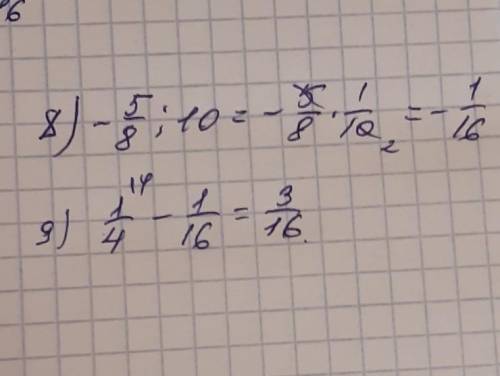 6
8) -5/8 : 10 = -5/8 · 1/10 2 = -1/16
9) 1/4 14 - 1/16 = 3/16.